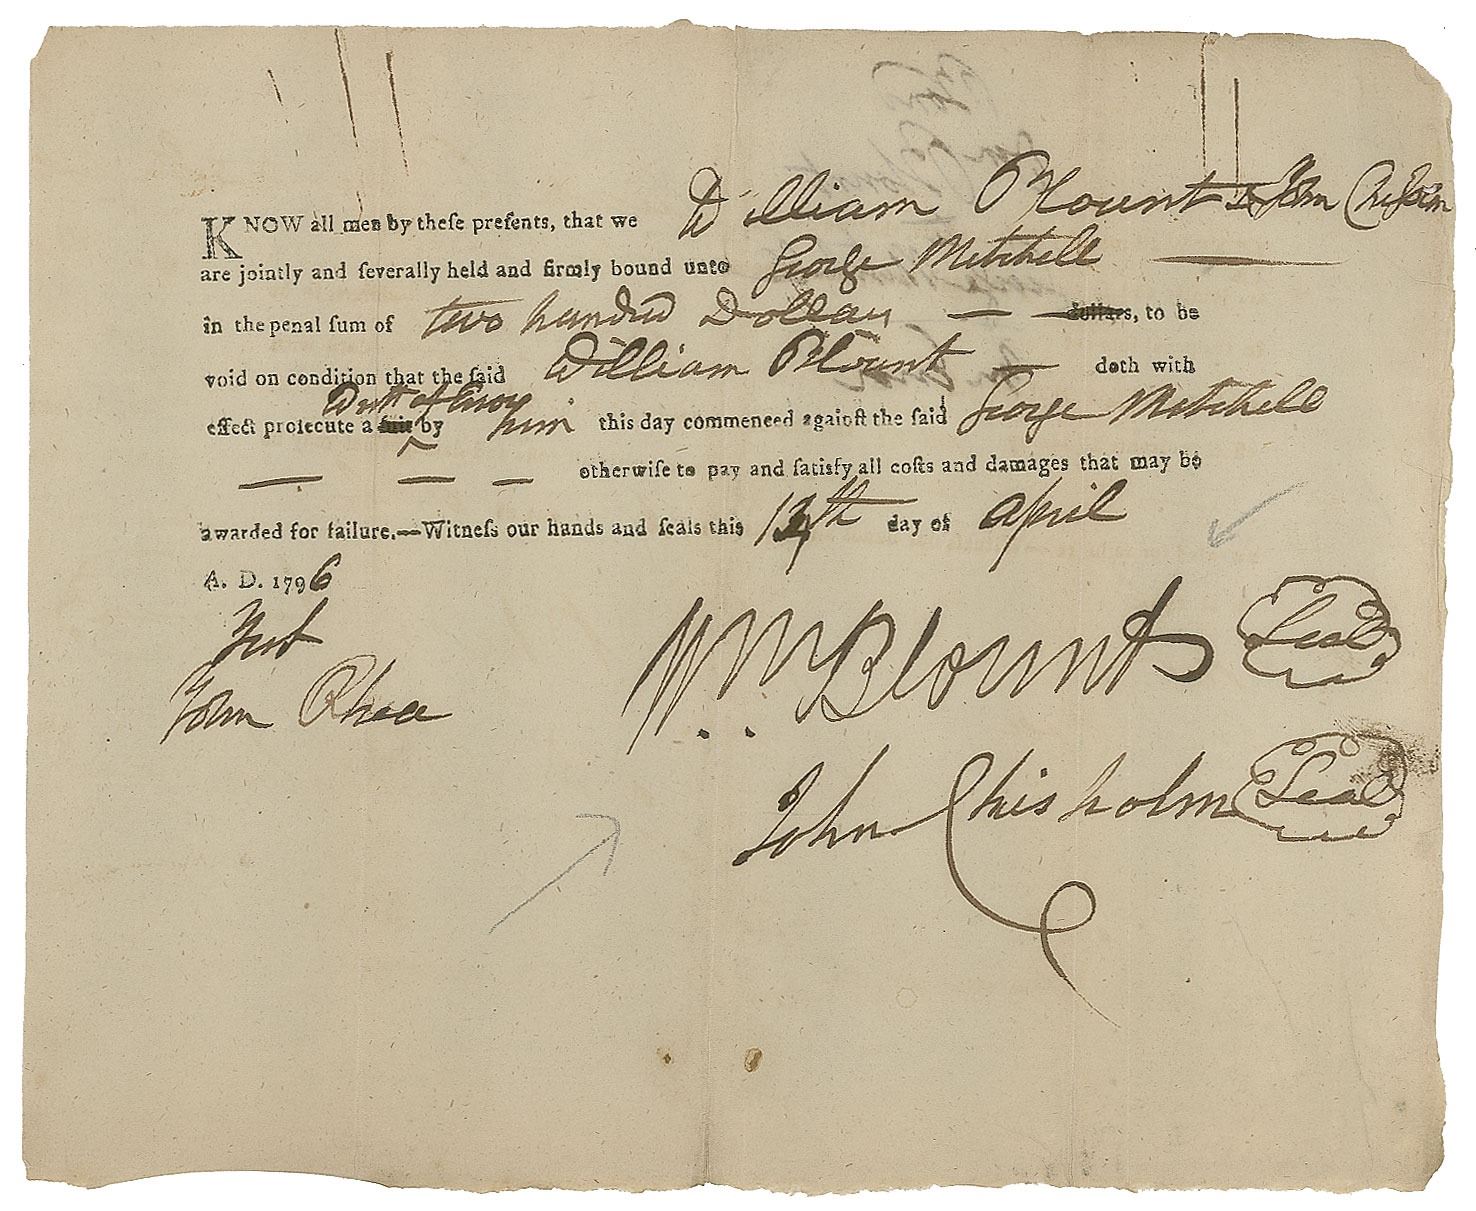 KNOW all men by theſe preſents, that we William Blount & John Chisolm
are jointly and ſeverally held and firmly bound unto George Mitchell
in the penal ſum of two hundred Dollars dollars, to be
void on condition that the ſaid William Blount doth with
Writ of Error
effect proſecute a ſuit by him this day commenced againſt the ſaid George Mitchell
otherwiſe to pay and ſatisfy all coſts and damages that may be
awarded for failure.—Witneſs our hands and ſeals this day of April
A. D. 1796
Test
Wm Blount Seal
John Rhea
John Chisholm Seal